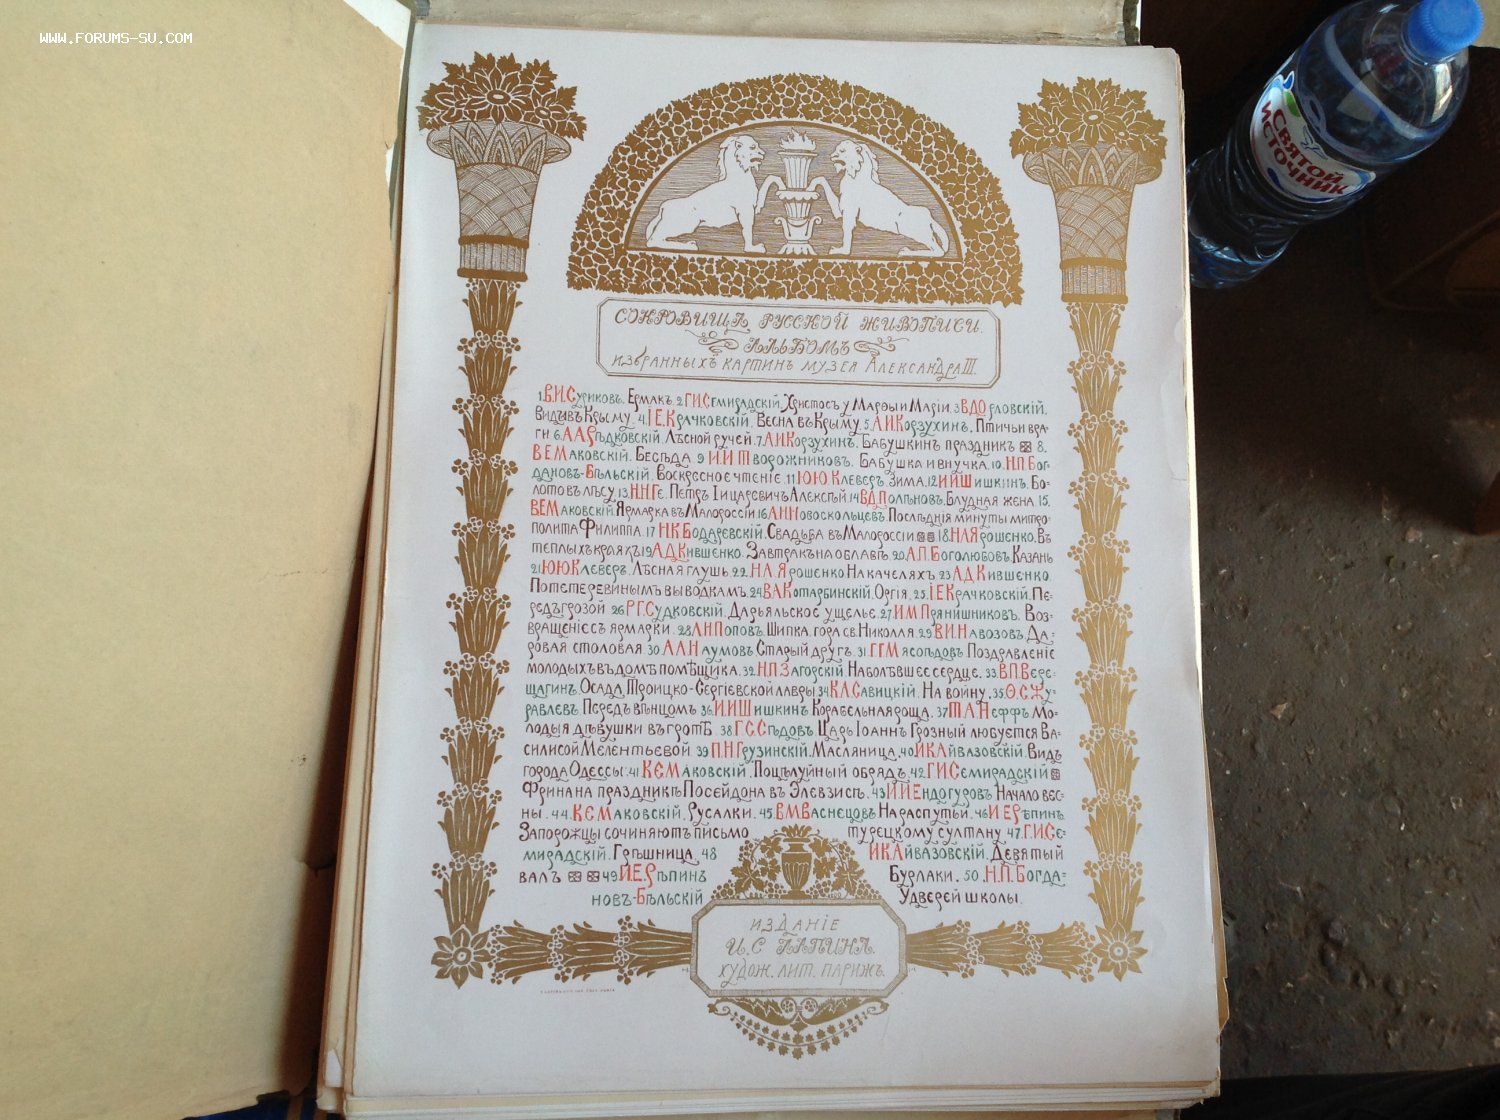 WWW.FORUMS-SU.COM
СВЯТОЙ
ИСТОЧНИК
СОКРОВИЩА РУССКОЙ ЖИВОПИСИ.
АЛЬБОМЪ
ИЗБРАННЫХЪ КАРТИНЪ МУЗЕЯ АЛЕКСАНДРА III.
1. В.И.Суриковъ. Ермакъ. 2. Г.И.Семирадскій. Христосъ у Марѳы и Маріи. 3. В.Д.Орловскій.
Видъ въ Крыму. 4. І.Е.Крачковскій. Весна въ Крыму. 5. А.И.Корзухинъ. Птичьи вра-
ги 6. А.А.Рѣдковскій. Лѣсной ручей. 7. А.И.Корзухинъ. Бабушкинъ праздникъ 8.
В.Е.Маковскій. Бесѣда 9 И.И.Творожниковъ. Бабушка и внучка. 10. Н.П.Бог-
дановъ-Бѣльскій. Воскресное чтеніе. 11 Ю.Ю.Клеверъ. Зима. 12 И.И.Шишкинъ. Бо-
лото въ лѣсу. 13. Н.Н.Ге. Петръ I и царевичъ Алексѣй 14 В.Д.Полѣновъ. Блудная жена. 15.
В.Е.Маковскій. Ярмарка въ Малороссіи 16 А.Н.Новоскольцевъ. Послѣднія минуты митро-
полита Филиппа. 17 Н.К.Бодаревскій. Свадьба въ Малороссіи 18. Н.А.Ярошенко. Въ
теплыхъ краяхъ 19 А.Д.Кившенко. Завтракъ на облавѣ. 20. А.П.Боголюбовъ. Казань
21 Ю.Ю.Клеверъ. Лѣсная глушь. 22. Н.А.Ярошенко На качеляхъ 23 А.Д.Кившенко.
По тетеревинымъ выводкамъ. 24 В.А.Котарбинскій. Оргія. 25. І.Е.Крачковскій. Пе-
редъ грозой 26 Р.Г.Судковскій. Дарьяльское ущелье. 27. И.М.Прянишниковъ. Воз-
вращеніе съ ярмарки. 28 Л.Н.Поповъ. Шипка. гора св. Николая. 29 В.И.Навозовъ. Да-
ровая столовая 30 А.А.Наумовъ Старый другъ. 31. Г.Г.Мясоѣдовъ Поздравленіе
молодыхъ въ домѣ помѣщика. 32. Н.П.Загорскій Наболѣвшее сердце. 33 В.П.Вере-
щагинъ. Осада Троицко-Сергіевской лавры 34 К.А.Савицкій. На войну. 35. Ѳ.С.Жу-
равлевъ Передъ вѣнцомъ 36 И.И.Шишкинъ Корабельная роща. 37 Т.А.Неффъ Мо-
лодыя дѣвушки въ гротѣ. 38 Г.С.Сѣдовъ Царь Іоаннъ Грозный любуется Ва-
силисой Мелентьевой 39 П.Н.Грузинскій. Масляница. 40 И.К.Айвазовскій. Видъ
города Одессы. 41 К.Е.Маковскій. Поцѣлуйный обрядъ. 42 Г.И.Семирадскій
Фрина на праздникѣ Посейдона въ Элевзисѣ. 43 И.И.Ендогуровъ Начало вес-
ны. 44. К.Е.Маковскій. Русалки. 45. В.М.Васнецовъ На распутьи. 46 И.Е.Рѣпинъ
Запорожцы сочиняютъ письмо турецкому султану 47. Г.И.Се-
мирадскій. Грѣшница. 48 И.К.Айвазовскій. Девятый
валъ 49 И.Е.Рѣпинъ Бурлаки. 50. Н.П.Богда-
новъ-Бѣльскій У дверей школы.
ИЗДАНІЕ
И.С ЛАПИНА.
ХУДОЖ. ЛИТ. ПАРИЖЪ.